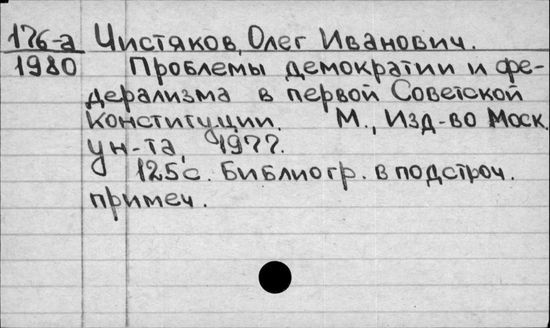 176-а Чистяков, Олег Иванович.
1980 Проблемы демократии и фе-
дерализма в первой Советской
Конституции. М., Изд-во Моск.
ун-та, 1977.
125с. Библиогр. в подстроч.
примеч.